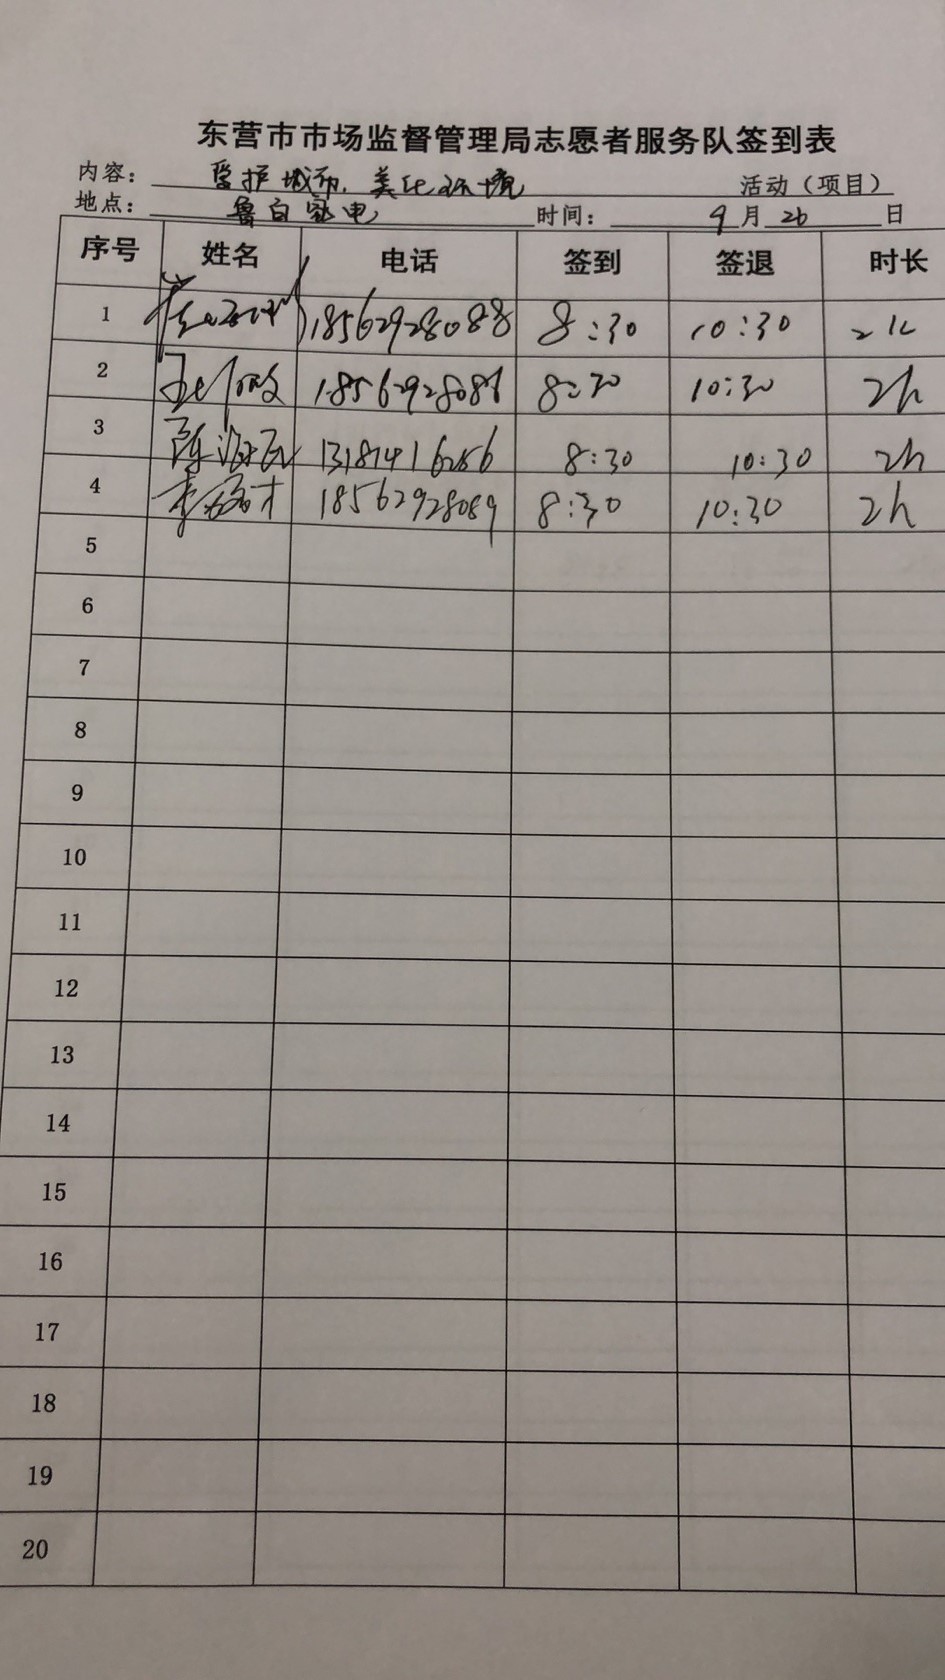 东营市市场监督管理局志愿者服务队签到表
内容： 城市，美化环境 活动（项目）
地点： 鲁百家电 时间： 9月26日
序号 姓名 电话 签到 签退 时长
1 18562928088 8:30 10:30 2h
2 18562928086 8:30 10:30 2h
3 陈 13181416256 8:30 10:30 2h
4 李 18562928089 8:30 10:30 2h
5
6
7
8
9
10
11
12
13
14
15
16
17
18
19
20